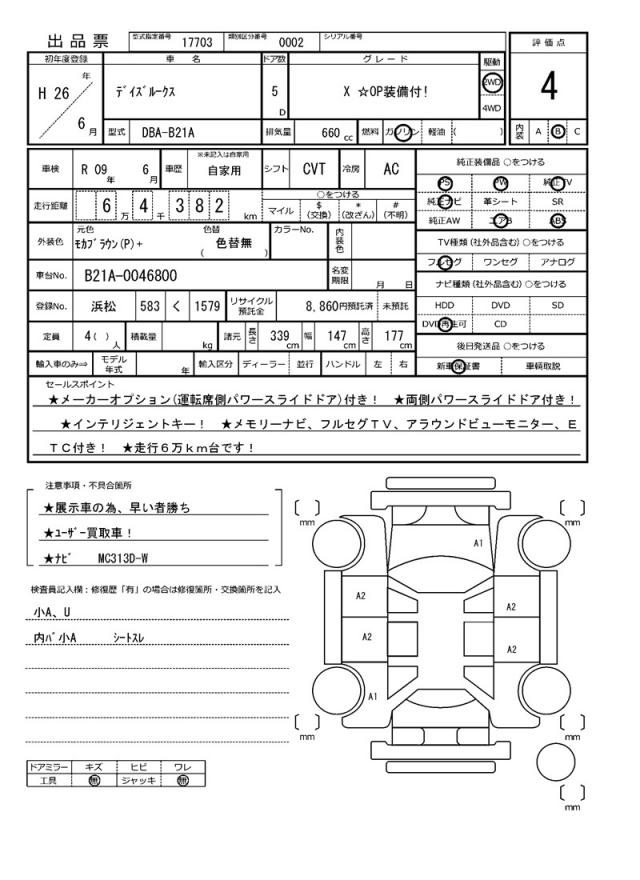 出品票 型式指定番号 17703 類別区分番号 0002 シリアル番号
評価点
4
内装 A B C
初年度登録 車名 ドア数 グレード 駆動
H 26 年 6 月
ﾃﾞｲｽﾞﾙｰｸｽ 5 D X ☆OP装備付! 2WD 4WD
型式 DBA-B21A 排気量 660 cc 燃料 ガソリン 軽油 ( )
車検 R 09 年 6 月 車歴 ※未記入は自家用 自家用 シフト CVT 冷房 AC
走行距離 6 万 4 千 3 8 2 km
○をつける
マイル $ (交換) * (改ざん) # (不明)
外装色 元色 ﾓｶﾌﾞﾗｳﾝ(P)+ 色替 ( 色替無 ) カラーNo. 内装色
車台No. B21A-0046800 名変期限 月 日
登録No. 浜松 583 く 1579 リサイクル預託金 8,860円預託済 未預託
定員 4( ) 人 積載量 kg 諸元 長さ 339 cm 幅 147 cm 高さ 177 cm
輸入車のみ⇒ モデル年式 年 輸入区分 ディーラー 並行 ハンドル 左 右
純正装備品 ○をつける
PS PW 純正TV
純正ナビ 革シート SR
純正AW エアB ABS
TV種類 (社外品含む) ○をつける
フルセグ ワンセグ アナログ
ナビ種類 (社外品含む) ○をつける
HDD DVD SD
DVD再生可 CD
後日発送品 ○をつける
新車保証書 車輌取説
セールスポイント
★メーカーオプション(運転席側パワースライドドア)付き! ★両側パワースライドドア付き!
★インテリジェントキー! ★メモリーナビ、フルセグTV、アラウンドビューモニター、E
TC付き! ★走行6万km台です!
注意事項・不具合箇所
★展示車の為、早い者勝ち
★ﾕｰｻﾞｰ買取車!
★ﾅﾋﾞ MC313D-W
検査員記入欄:修復歴「有」の場合は修復箇所・交換箇所を記入
小A、U
内ﾊﾞ小A ｼｰﾄｽﾚ
ドアミラー キズ ヒビ ワレ
工具 無 ジャッキ 無
〔 〕 mm 〔 〕 mm
A1
A2 A2
A2 A2
A1
〔 〕 mm 〔 〕 mm
〔 〕 mm